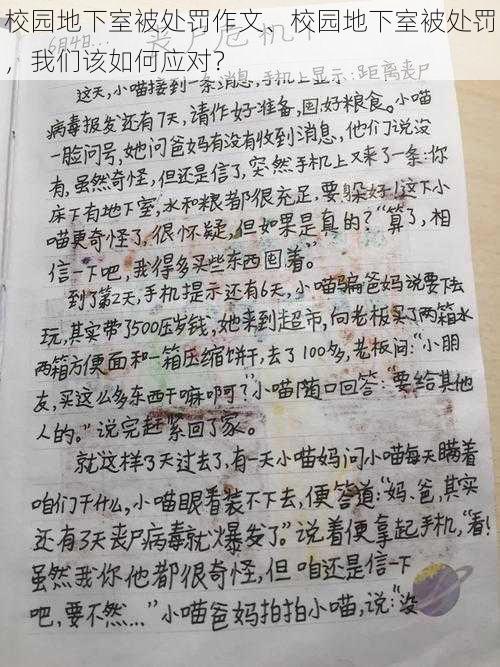 校园地下室被处罚作文、校园地下室被处罚
，我们该如何应对？
6月4日…
丧尸危机
这天,小喵接到一条消息,手机上显示:距离丧尸
病毒报发还有7天,请作好准备,囤好粮食。小喵
一脸问号,她问爸妈有没有收到消息,他们说没
有,虽然奇怪,但还是信了,突然手机上又来了一条:你
床下有地下室,水和粮都很充足,要躲好!这下小
喵更奇怪了,很怀疑,但如果是真的?“算了,相
信一下吧,我得多买些东西囤着。”
到了第2天,手机提示还有6天,小喵骗爸妈说要下去
玩,其实带了500压岁钱,她来到超市,向老板买了两箱水
两箱方便面和一箱压缩饼干,去了100多,老板问:“小朋
友,买这么多东西干嘛啊?”小喵随口回答:“要给其他
人的。”说完赶紧回了家。
就这样3天过去了,有一天小喵妈问小喵每天瞒着
咱们干什么,小喵眼看装不下去,便答道:“妈、爸,其实
还有3天丧尸病毒就爆发了。”说着便拿起手机,“看!
虽然我你他都很奇怪,但咱还是信一下
吧,要不然...”小喵爸妈拍拍小喵,说:“没